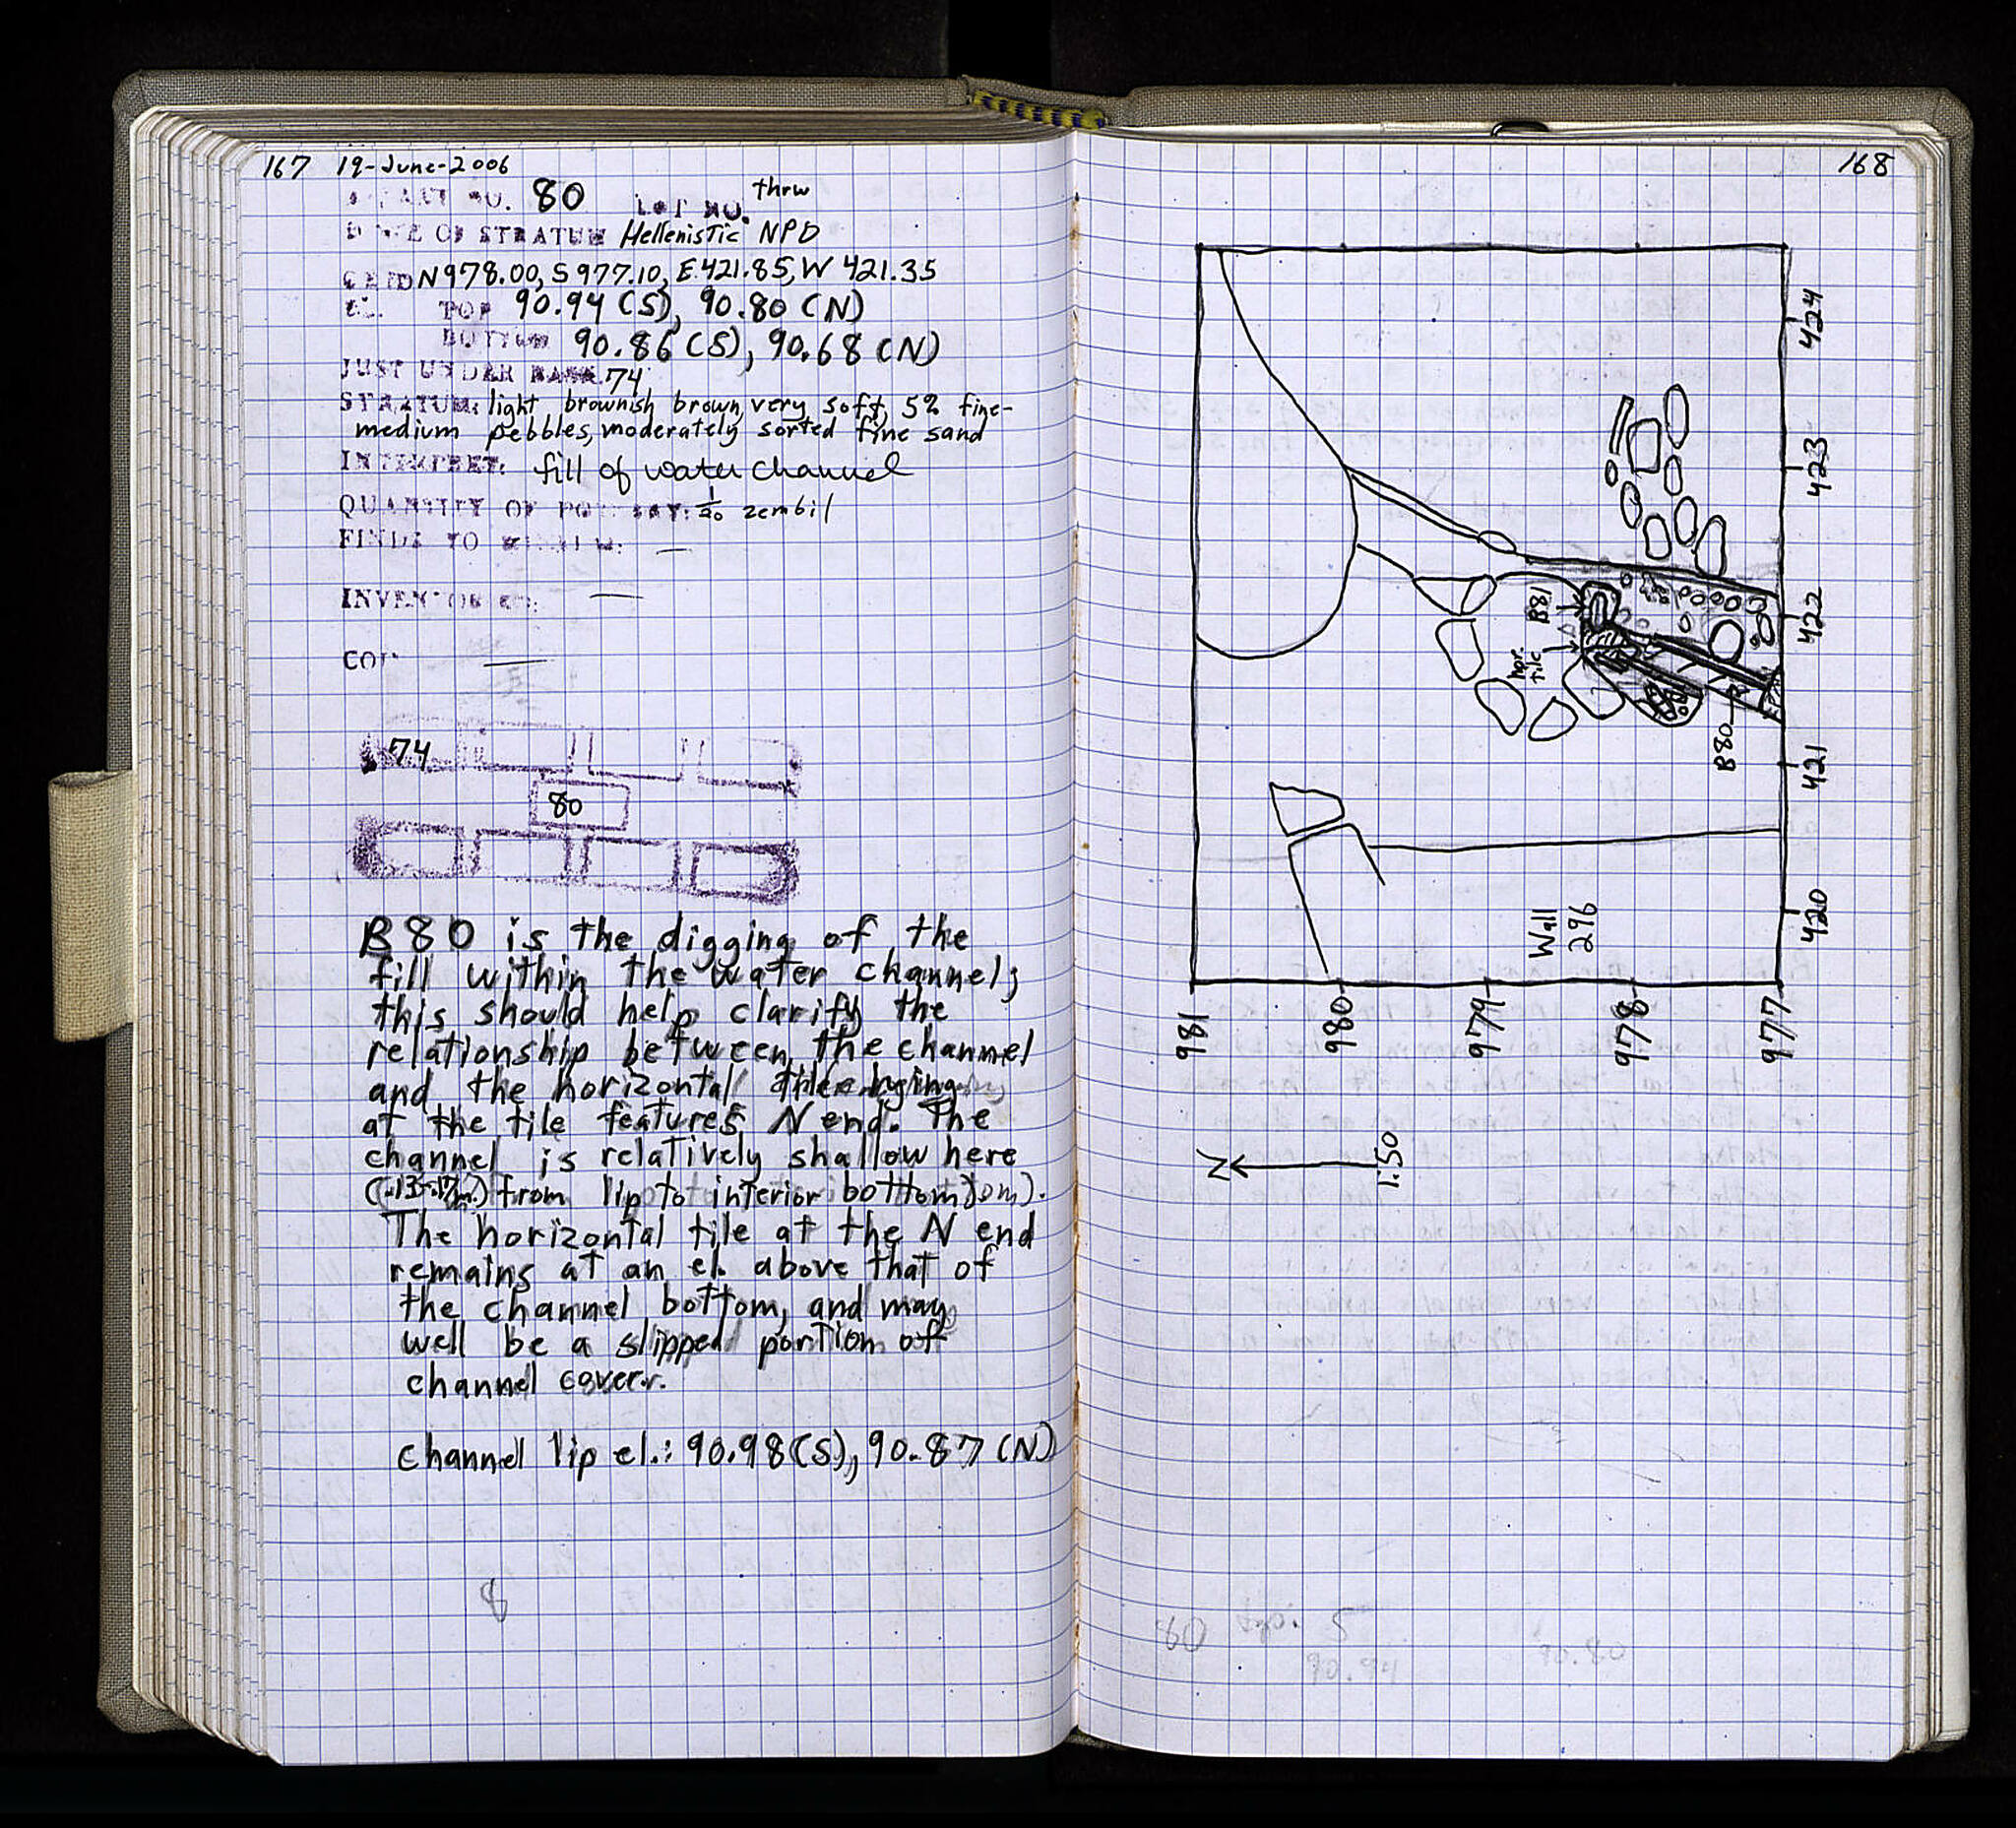 167 19-June-2006
BASKET NO. 80 LOT NO. thrw
DATE OF STRATUM Hellenistic NPD
GRID N978.00, S 977.10, E.421.85, W 421.35
EL. TOP 90.94 (S), 90.80 (N)
BOTTOM 90.86 (S), 90.68 (N)
JUST UNDER BASK. 74
STRATUM: light brownish brown, very soft, 5% fine-
medium pebbles, moderately sorted fine sand
INTERPRET: fill of water channel
QUANTITY OF POTTERY: 1/20 zembil
FINDS TO —
INVENTORIED: —
COI —
74
80
B80 is the digging of the
fill within the water channel;
this should help clarify the
relationship between the channel
and the horizontal tile lying
at the tile features N end. The
channel is relatively shallow here
(.13-.17m.) from lip to interior bottom).
The horizontal tile at the N end
remains at an el. above that of
the channel bottom, and may
well be a slipped portion of
channel cover.
channel lip el.: 90.98 (S), 90.87 (N)
8
168
424
423
422
421
420
B81
hor.
tile
B80
Wall
296
981
980
979
978
977
N
1:50
80 S
90.94
90.80